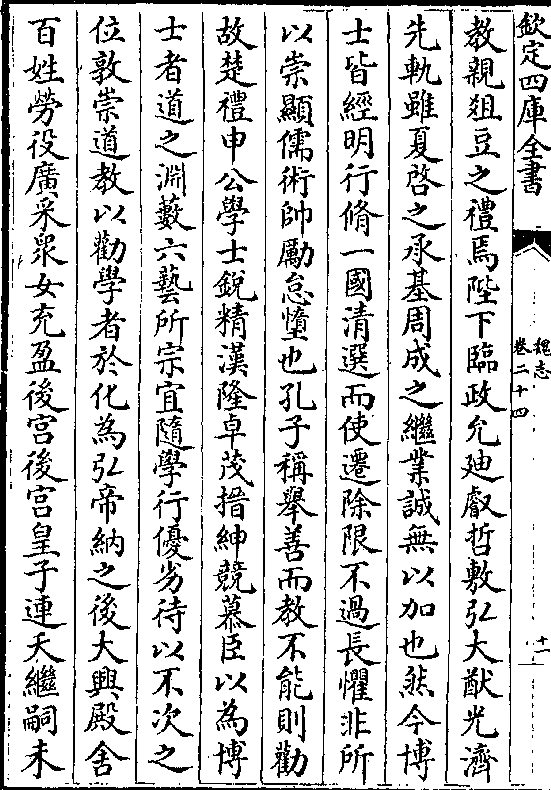 欽定四庫全書
魏志
卷二十四
十一
教親俎豆之禮焉陛下臨政允廸叡哲敷弘大猷光濟
先軌雖夏啓之承基周成之繼業誠無以加也然今博
士皆經明行脩一國清選而使遷除限不過長懼非所
以崇顯儒術帥勵怠惰也孔子稱舉善而教不能則勸
故楚禮申公學士銳精漢隆卓茂搢紳競慕臣以為博
士者道之淵藪六藝所宗宜隨學行優劣待以不次之
位敦崇道教以勸學者於化為弘帝納之後大興殿舍
百姓勞役廣采衆女充盈後宫後宫皇子連夭繼嗣未